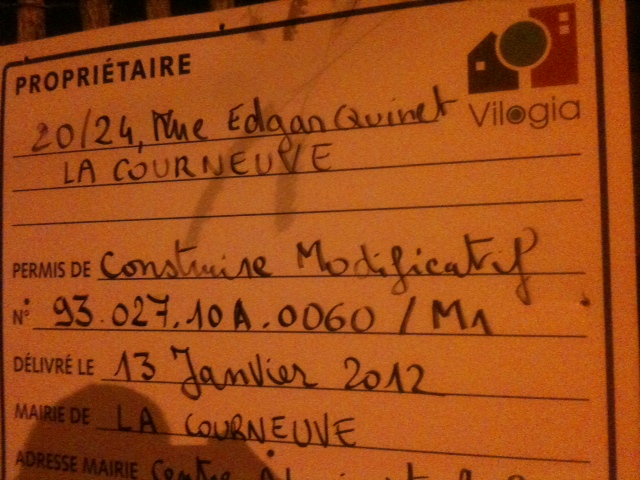 PROPRIÉTAIRE
Vilogia
20/24, Rue Edgar Quinet
LA COURNEUVE
PERMIS DE Construire Modificatif
N° 93.027.10A.0060 / M1
DÉLIVRÉ LE 13 Janvier 2012
MAIRIE DE LA COURNEUVE
ADRESSE MAIRIE Centre